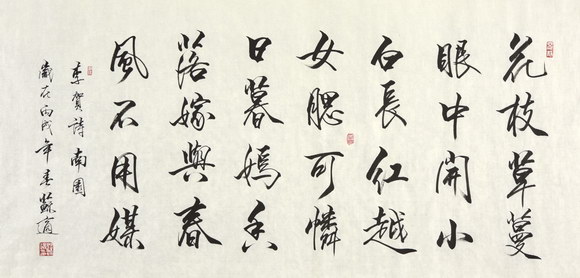 花枝草蔓
眼中開小
白長紅越
女腮可憐
日暮嫣香
落嫁與春
風不用媒
李賀詩南園
歲在丙戌年春蘇適